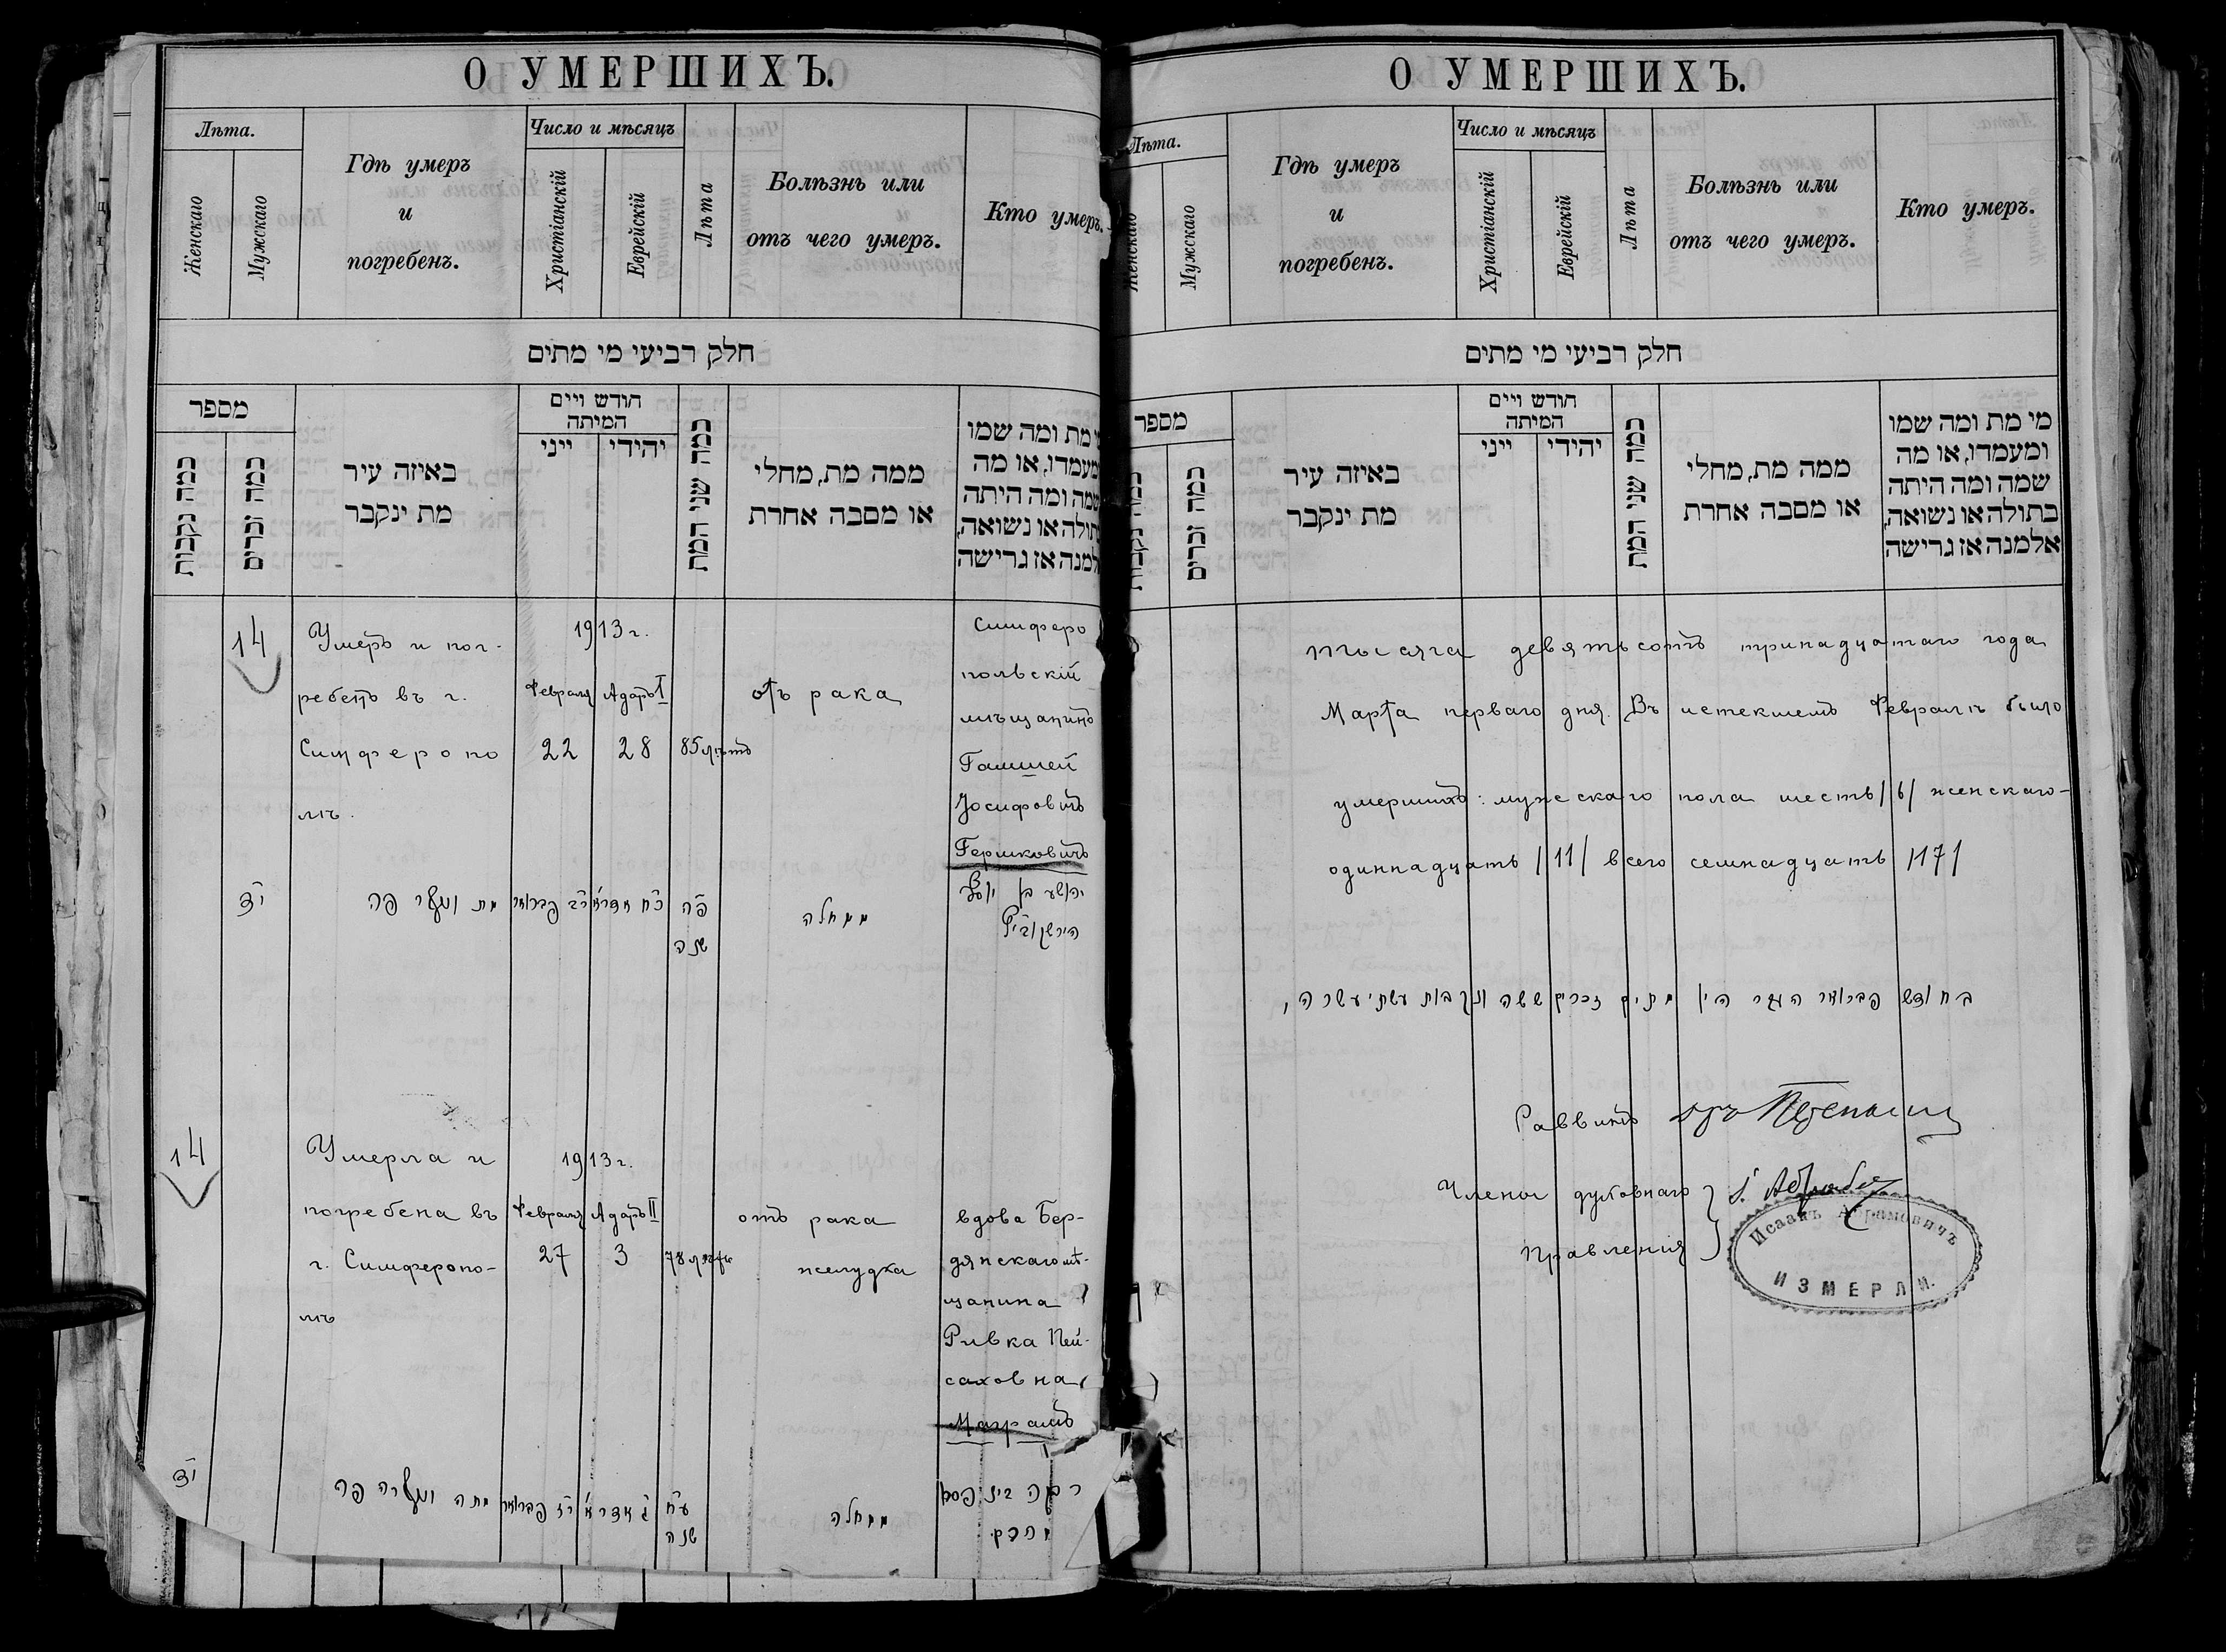 О УМЕРШИХЪ.
Лѣта.
Женскаго
Мужскаго
Гдѣ умеръ
и
погребенъ.
Число и мѣсяцъ
Христіанскій
Еврейскій
Лѣта
Болѣзнь или
отъ чего умеръ.
Кто умеръ.
חלק רביעי מי מתים
מספר
כמה נקבות
כמה זכרים
באיזה עיר
מת ינקבר
חודש ויים
המיתה
ייני
יהידי
כמה שני המת
ממה מת, מחלי
או מסבה אחרת
מת ומה שמו
ומעמדו, או מה
שמה ומה היתה
בתולה או נשואה,
אלמנה אז גרישה
14
Умеръ и пог-
ребенъ въ г.
Симферопо
лѣ.
1913 г.
Февраля
22
Адаръ I
28
85 лѣтъ
отъ рака
Симферо
польскій
мѣщанинъ
Гамшей
Іосифовичъ
Гершковичъ
יד
מת ונקבר פה
כ״ב פברואר
כ״ח אדר א׳
פ״ה
שנה
ממחלה
יהושע בן יוסף
הירשקוביץ
14
Умерла и
погребена въ
г. Симферопо-
лѣ
1913 г.
Февраля
27
Адаръ II
3
78 лѣтъ
отъ рака
желудка
вдова Бер-
дянскаго мѣ-
щанина
Ривка Пей-
саховна
יד
מתה ונקברה פה
כ״ז פברואר
ע״ח
שנה
ממחלה
רבקה בת פסח
О УМЕРШИХЪ.
Лѣта.
Женскаго
Мужскаго
Гдѣ умеръ
и
погребенъ.
Число и мѣсяцъ
Христіанскій
Еврейскій
Лѣта
Болѣзнь или
отъ чего умеръ.
Кто умеръ.
חלק רביעי מי מתים
מספר
כמה נקבות
כמה זכרים
באיזה עיר
מת ינקבר
חודש ויים
המיתה
ייני
יהידי
כמה שני המת
ממה מת, מחלי
או מסבה אחרת
מי מת ומה שמו
ומעמדו, או מה
שמה ומה היתה
בתולה או נשואה,
אלמנה אז גרישה
тысяча девятьсотъ тринадцатаго года
Марта перваго дня. Въ истекшемъ Февралѣ было
умершихъ: мужскаго пола шесть /6/ женскаго-
одиннадцать /11/ всего семнадцать /17/
בחודש פברואר העבר היו מתים זכרים ששה ונקבות עשתי עשרה,
Раввинъ
Члены духовнаго
Правленія
Исаакъ Абрамовичъ
ИЗМЕРЛИ.